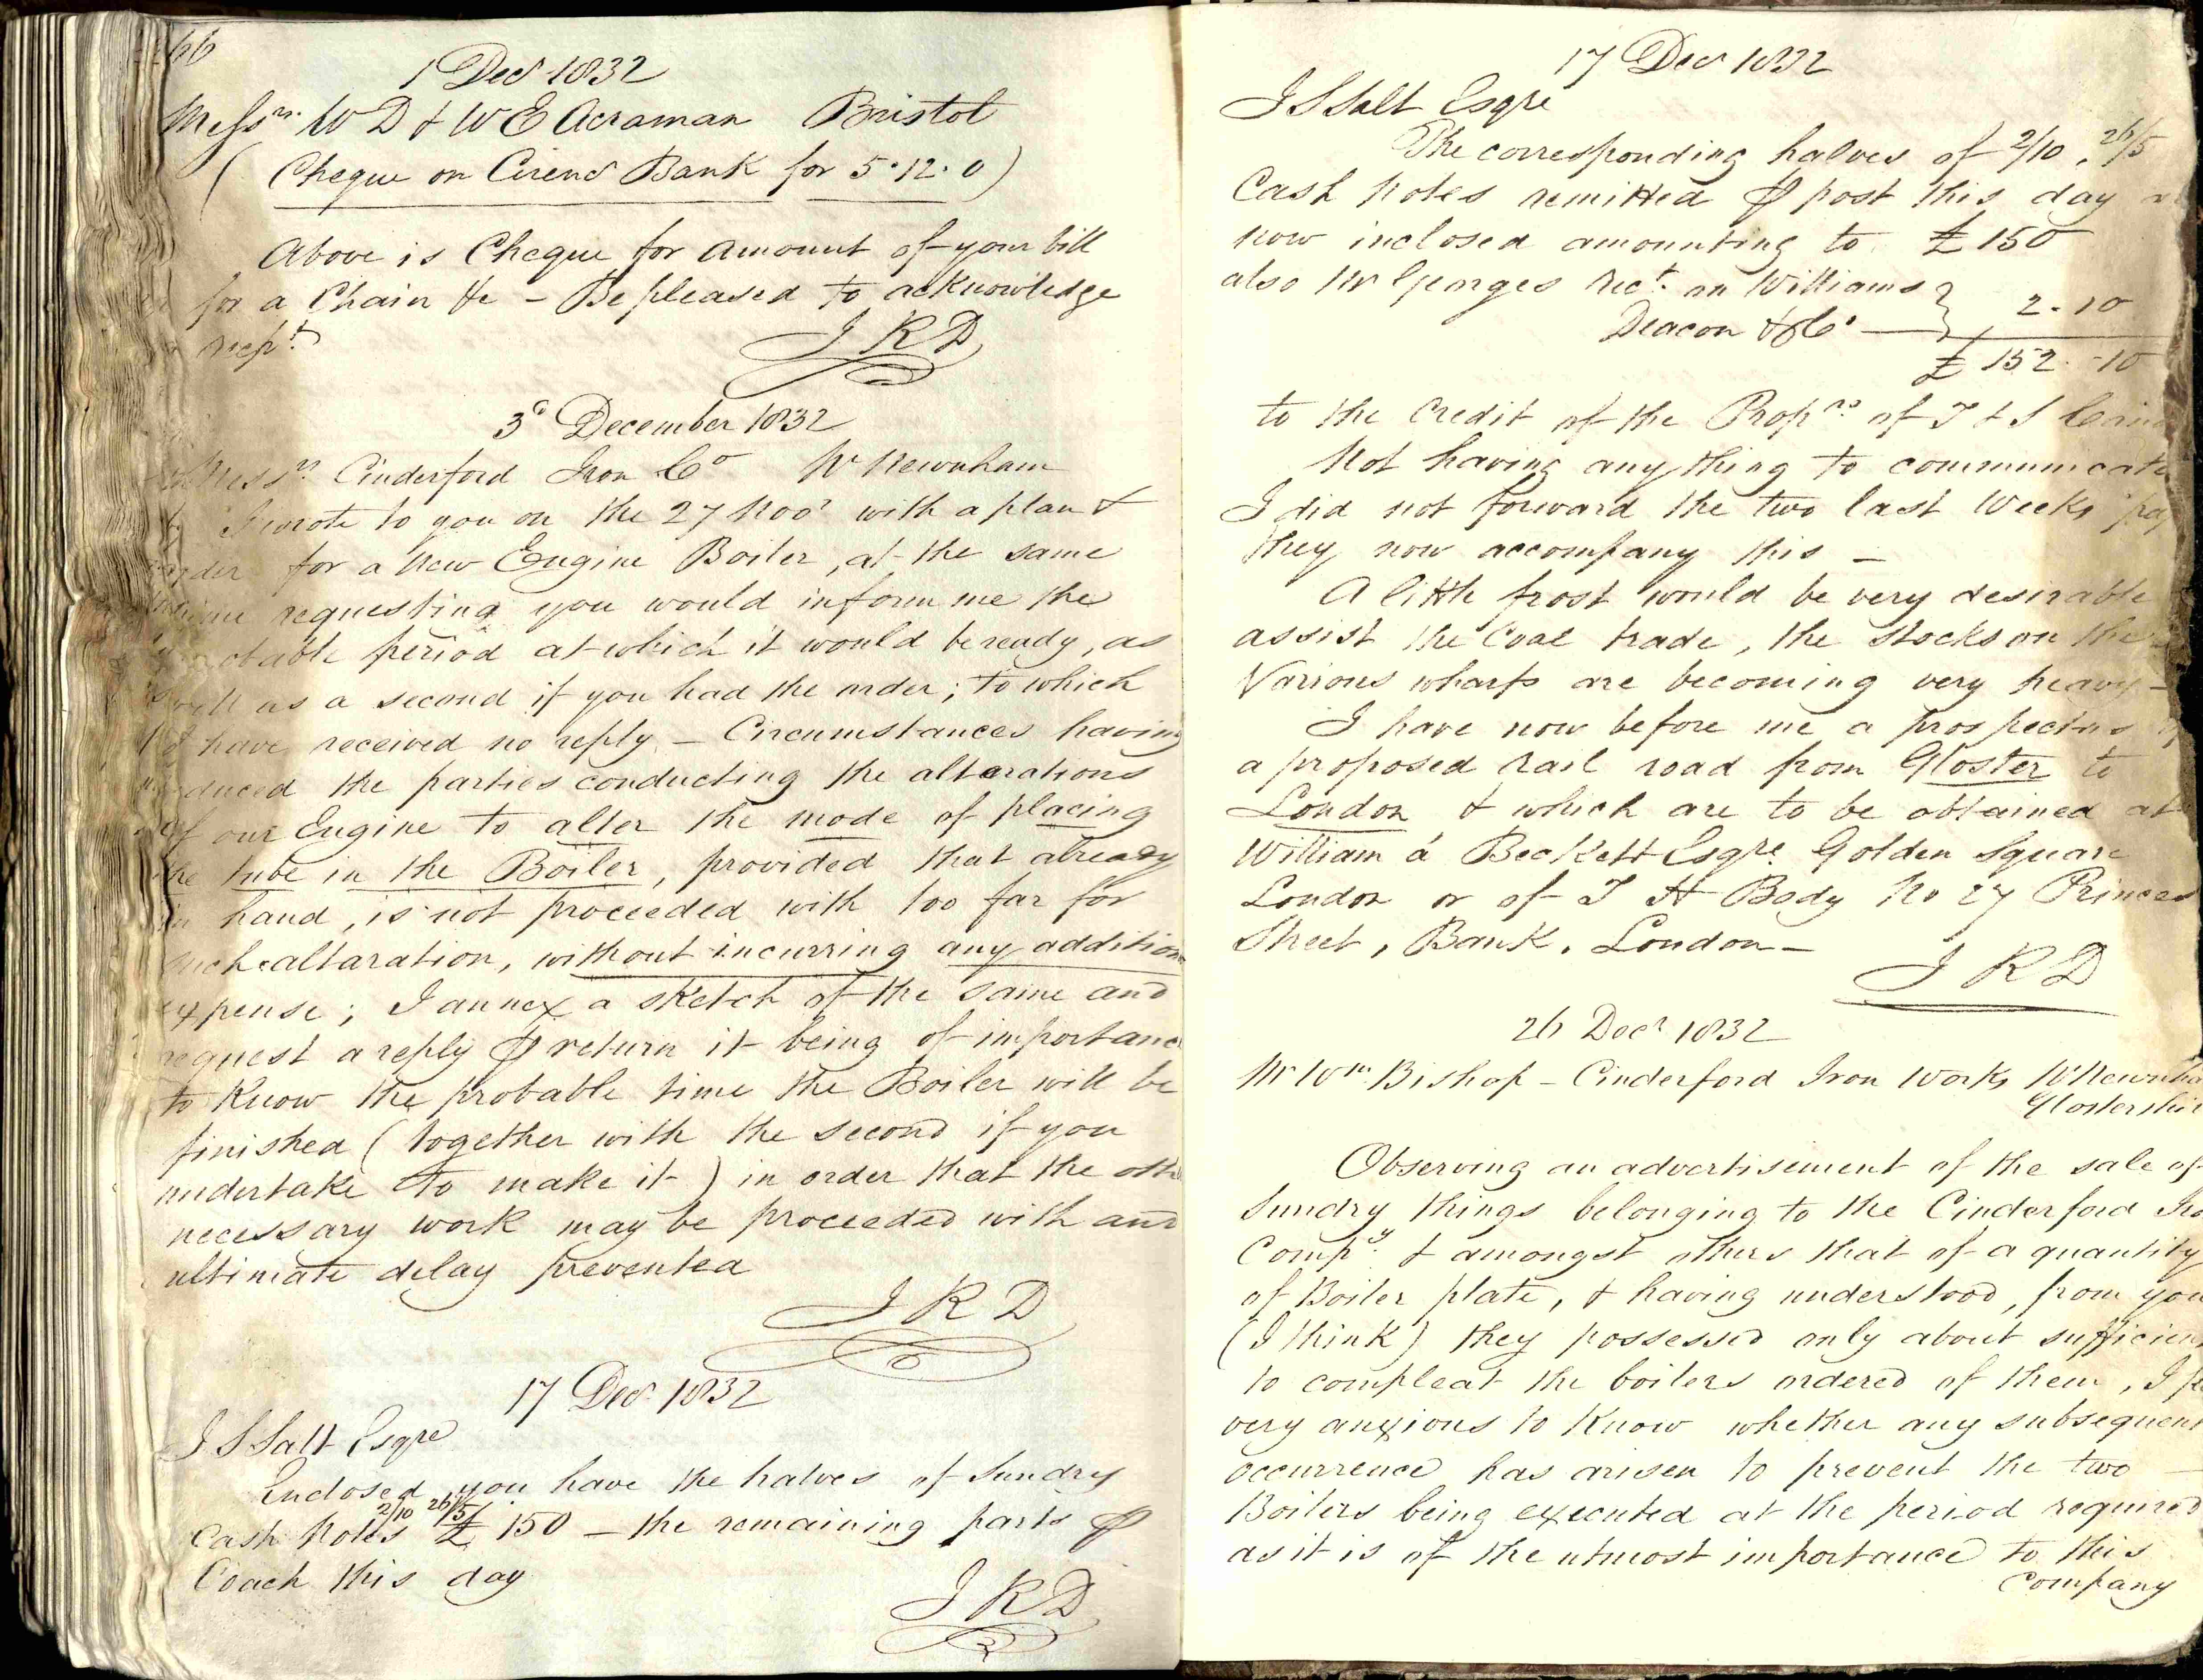 66
1 Decr 1832
Messrs. W D & W E Acraman Bristol
( Cheque on Cirenr Bank for 5.12.0 )
Above is Cheque for amount of your bill
for a Chain &c - Be pleased to acknowledge
recpt.
J R D
3d December 1832
Messrs. Cinderford Iron Co Nr Newnham
I wrote to you on the 27 Novr with a plan &
order for a New Engine Boiler, at the same
time requesting you would inform me the
probable period at which it would be ready, as
well as a second if you had the order; to which
I have received no reply - Circumstances having
induced the parties conducting the altarations
of our Engine to alter the mode of placing
the tube in the Boiler, provided that already
in hand, is not proceeded with too far for
such altaration, without incurring any addition
expense; I annex a sketch of the same and
request a reply ⅌ return it being of importanc
to Know the probable time the Boiler will be
finished (together with the second if you
undertake to make it) in order that the oth
necessary work may be proceeded with and
ultimate delay prevented
J R D
17 Decr. 1832
J S Salt Esqre
Enclosed you have the halves of Sundry
2/10 26/5
Cash Notes £ 150 - the remaining parts ⅌
Coach this day
J R D
17 Decr 1832
J S Salt Esqre
The corresponding halves of 2/10, 26/5
Cash Notes remitted ⅌ post this day
now inclosed amounting to £ 150
also Mr Georges rect. on Williams }
Deacon & Co — } 2.10
£ 152.-10
to the Credit of the Proprs of T & S
Not having any thing to communicate
I did not forward the two last Weeks pay
they now accompany this -
A little frost would be very desirable
assist the Coal trade, the Stocks on the
Various wharfs are becoming very heavy -
I have now before me a prospectus
a proposed rail road from Gloster to
London & which are to be obtained at
William á Beckett Esqre. Golden Square
London or of T H Body No 27 Princes
Street, Bank, London -
J R D
26 Decr 1832
Mr Wm. Bishop - Cinderford Iron Works Nr Newnha
Glostershir
Observing an advertisement of the sale of
Sundry things belonging to the Cinderford Iro
Compy. & amongst others that of a quantity
of Boiler plate, & having understood, from you
(I think) they possessed only about sufficien
to compleat the boilers ordered of them, I
very anxious to Know whether any subsequent
occurrence has arisen to prevent the two -
Boilers being executed at the period required
as it is of the utmost importance to this
Company